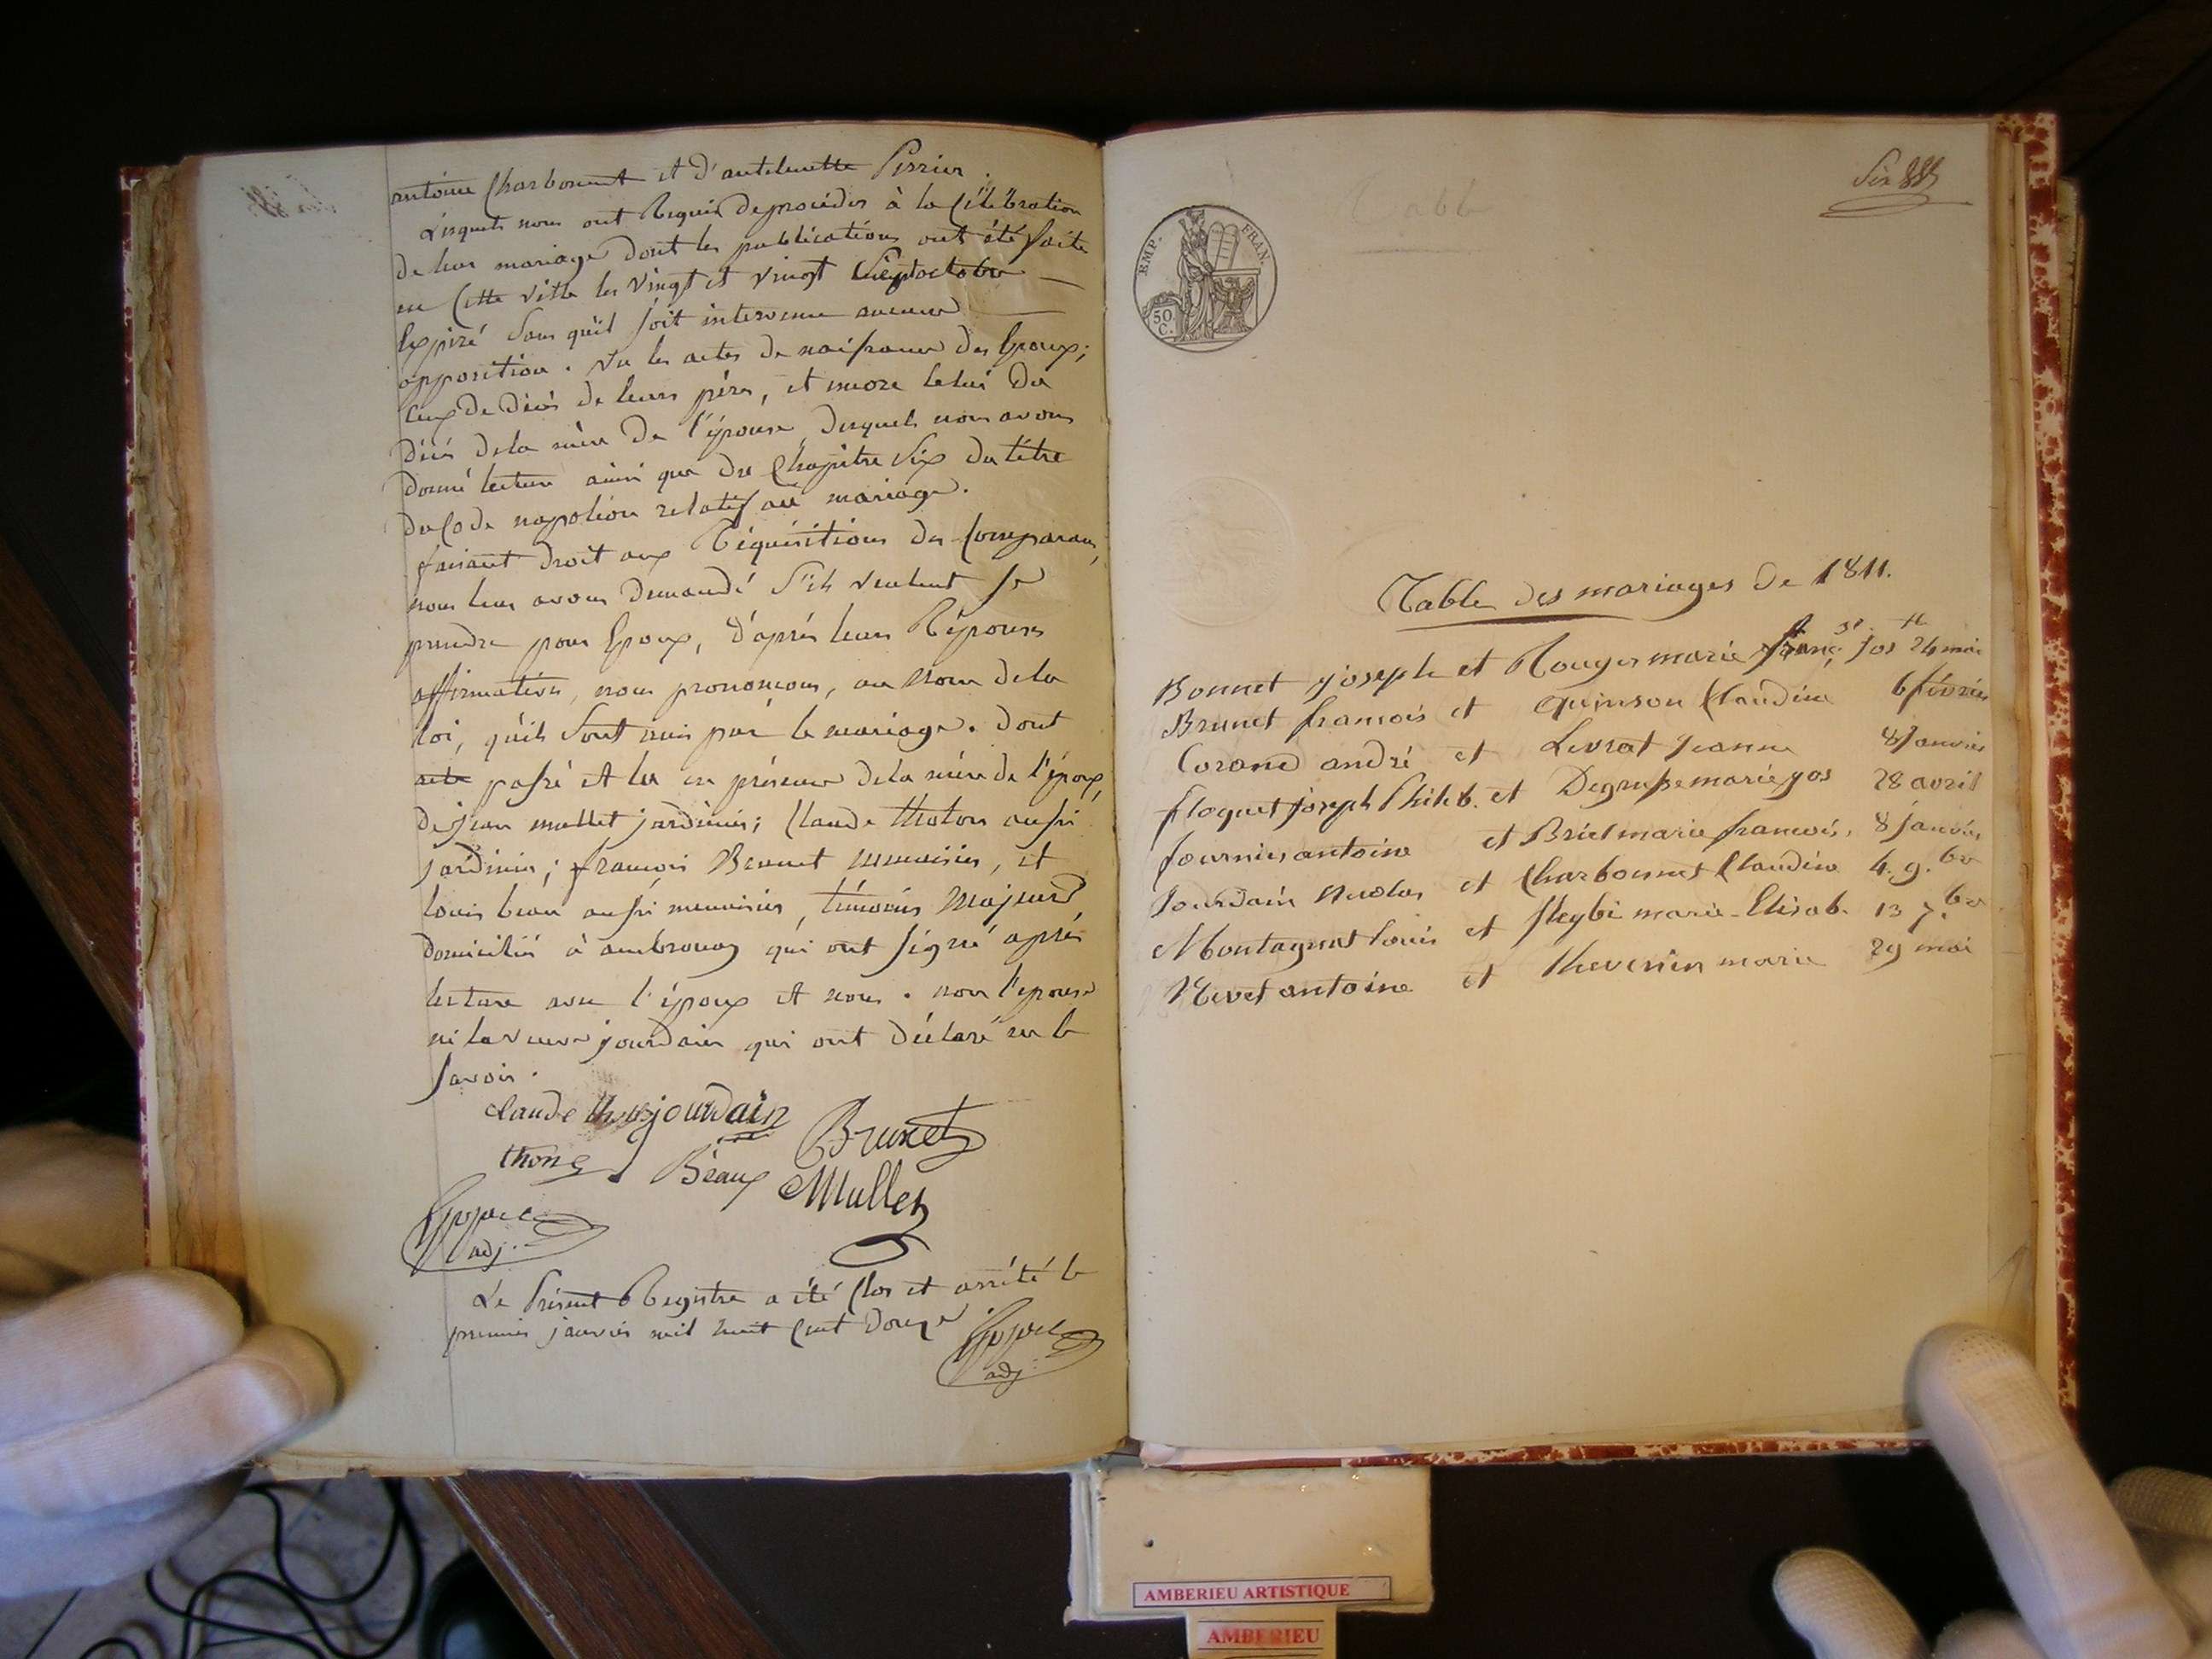 antoine Charbonnet et d'antelmette Perrier.
Lesquels nous ont Requis de procéder à la Célébration
de leur mariage dont les publications ont été faite
en Cette ville les vingt et vingt Sept octobre
Expiré sans qu'il soit intervenu aucune
opposition. Vu les actes de naissance des Epoux;
Ceux de décès de leurs pères, et encore Celui du
décès de la mère de l'épouse desquels nous avons
donné lecture ainsi que du Chapitre Six du titre
du Code napoléon relatif au mariage.
faisant droit aux Réquisitions des Comparans,
nous leur avons demandé S'ils veulent se
prendre pour Epoux, d'après leurs Réponses
affirmatives, nous prononcons, au nom de la
loi, qu'ils sont unis par le mariage. Dont
acte passé et lu en présence de la mère de l'époux,
de jean mullet jardinier; Claude thoton aussi
jardinier; francois Brunet menuisier, et
louis beau aussi menuisier, témoins Majeurs
domiciliés à ambronay qui ont signé après
lecture avec l'époux et nous. non l'épouse
ni la veuve jourdain qui ont déclaré ne le
savoir.
Claude jourdain
Brunet
thon Béaux Mullet
adj.
Le Présent Registre a été Clos et arrêté le
premier janvier mil huit Cent Douze
adj:
Six
EMP. FRAN.
50 C.
Table
Table des mariages de 1811.
Bonnet joseph et Rouger marie franç.se jos.te 24 mai
Brunet francois et Quinson Claudine 6 février
Corand andré et Levrat jeanne 8 Janvier
floquet joseph Philib. et Degrusse marie jos 28 avril
fournier antoine et Briel marie francois. 8 janvier
Jourdain Nicolas et Charbonnet Claudine 4. 9.bre
Montagnat louis et Sleybi marie-Elisab. 13 7.bre
Nevet antoine et thevenin marie 29 mai
AMBERIEU ARTISTIQUE
AMBERIEU